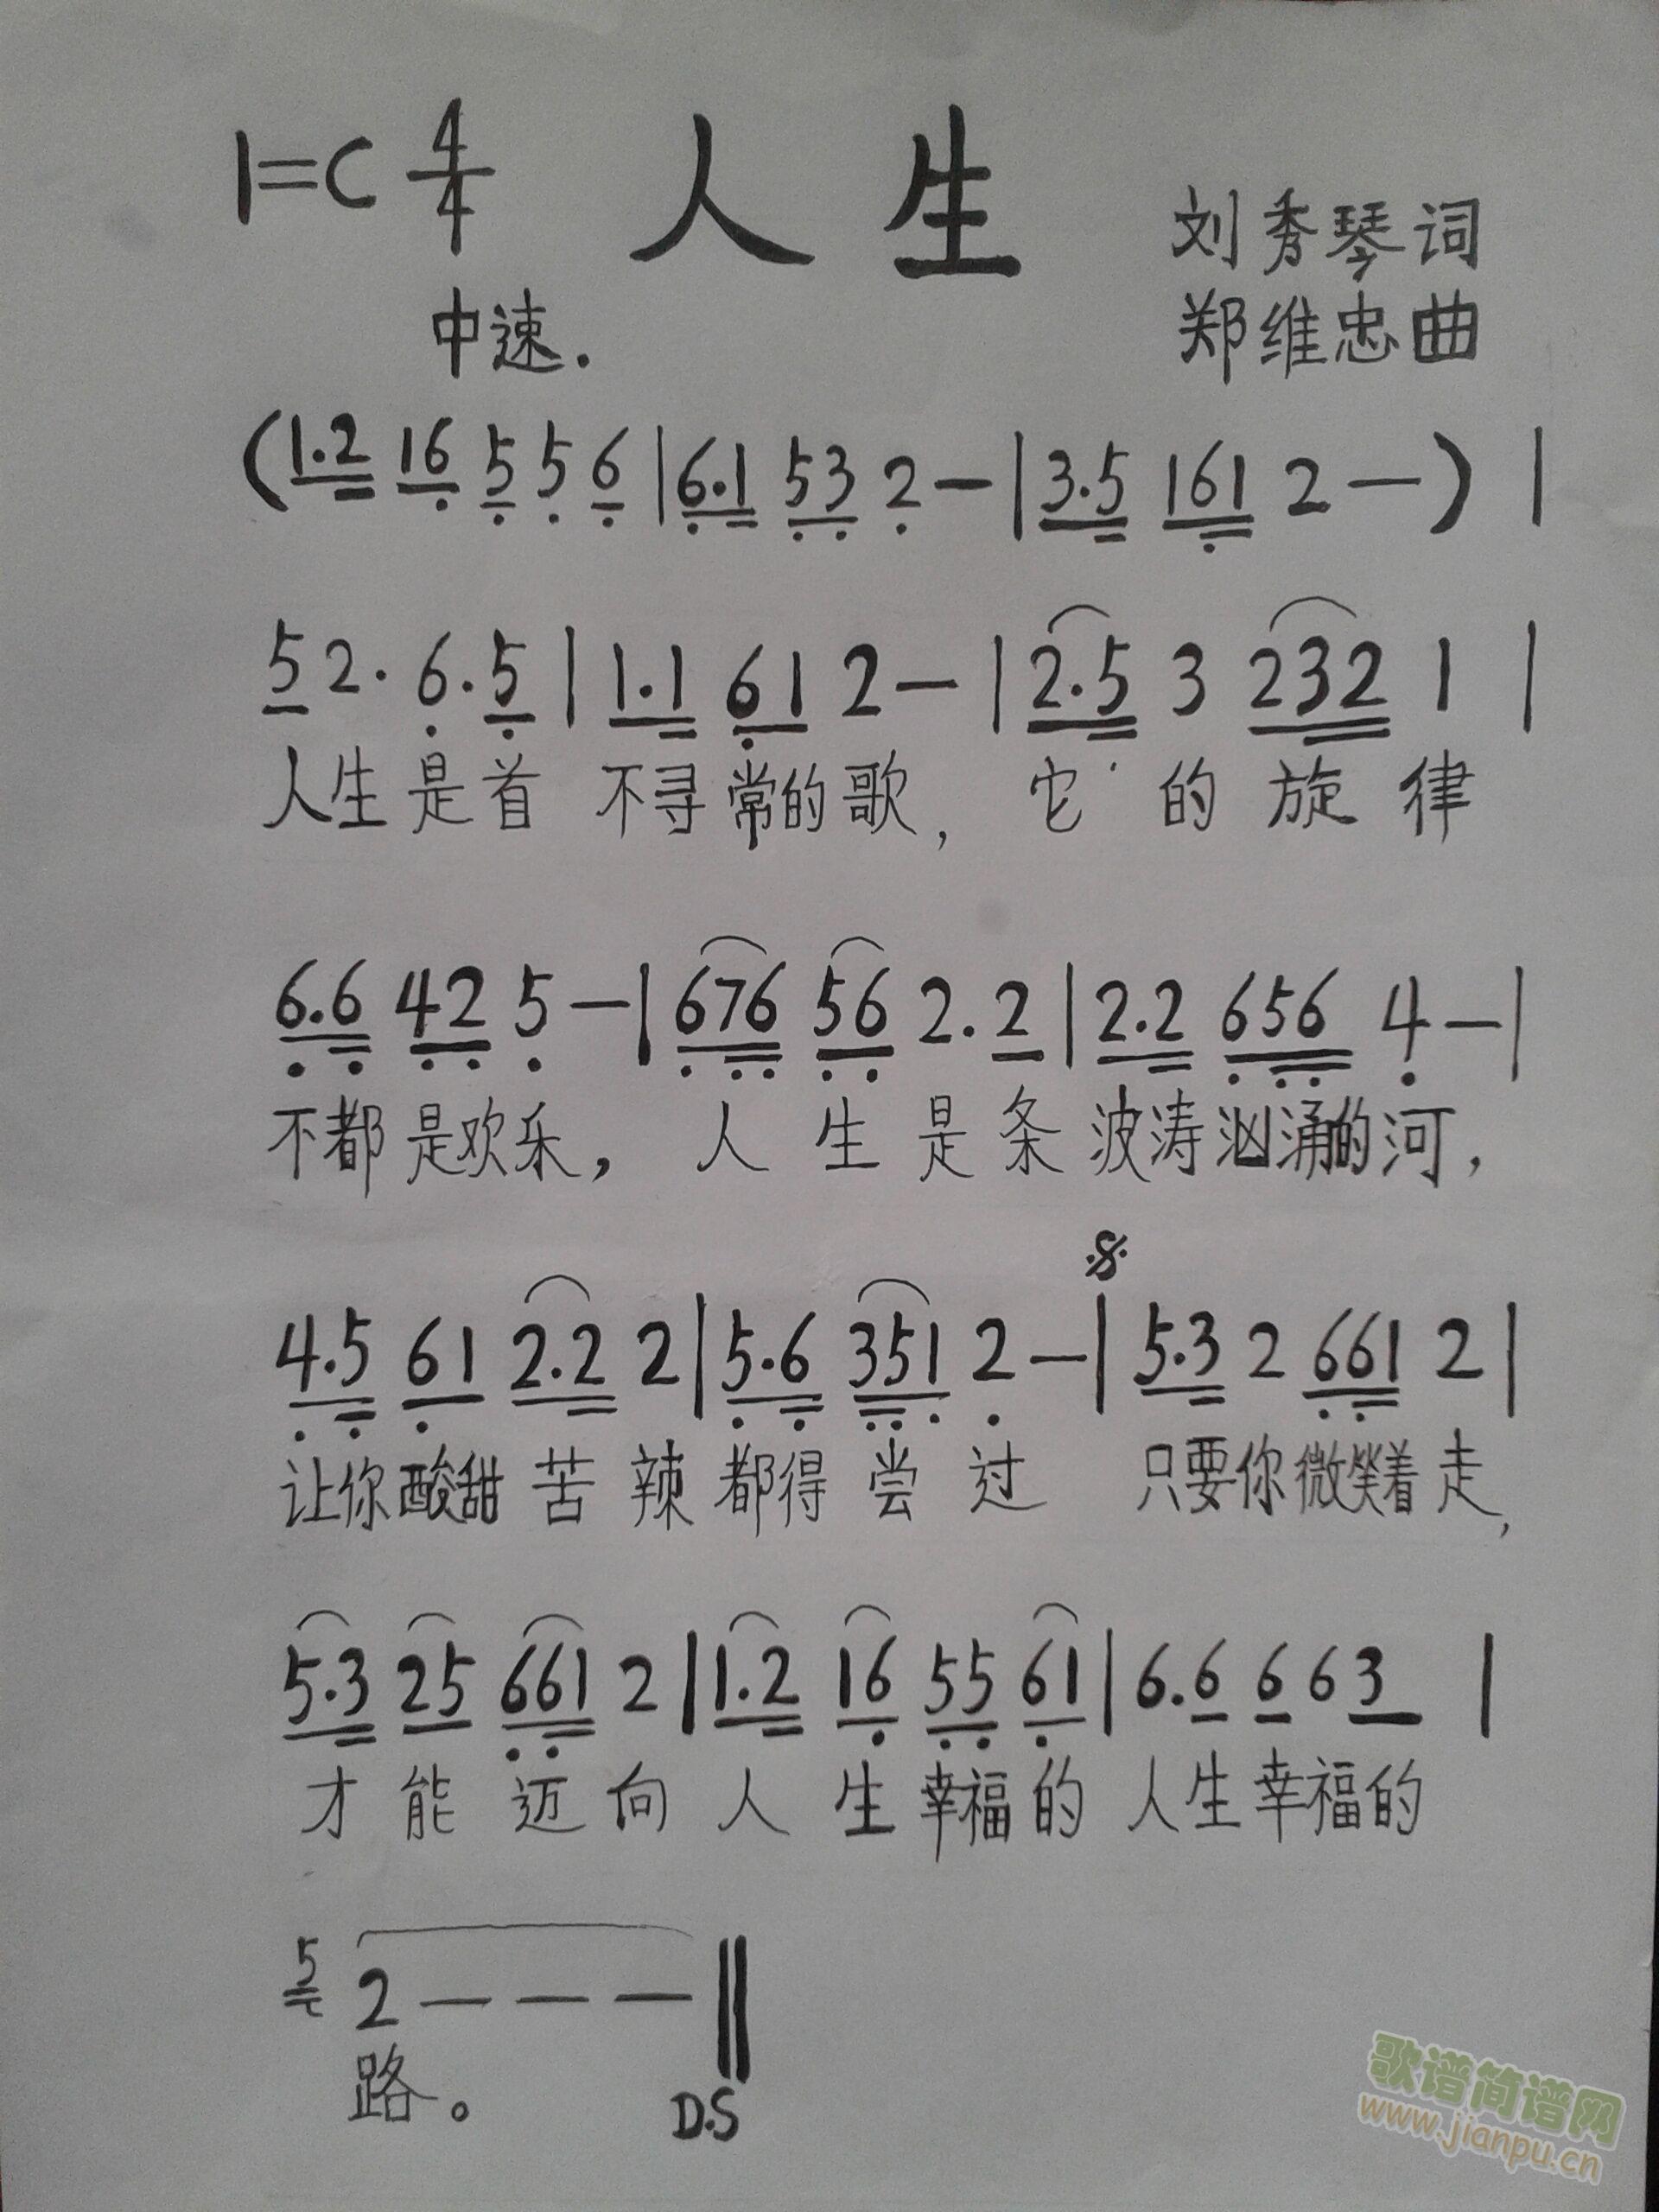 1=C 4/4 人生
刘秀琴词
中速. 郑维忠曲
(1.2 16 5 5 6 | 6.1 53 2 — | 3.5 161 2 — ) |
5 2. 6.5 | 1.1 61 2 — | 2.5 3 232 1 |
人生是首 不寻常的歌, 它的旋律
6.6 42 5 — | 676 56 2.2 | 2.2 656 4 — |
不都是欢乐, 人生是条波涛汹涌的河,
4.5 61 2.2 2 | 5.6 351 2 — | 5.3 2 661 2 |
让你酸甜苦辣都得尝过 只要你微笑着走,
5.3 25 661 2 | 1.2 16 55 61 | 6.6 6 6 3 |
才能迈向人生幸福的人生幸福的
5 2 — — — ‖
路。 D.S
歌谱简谱网
www.jianpu.cn